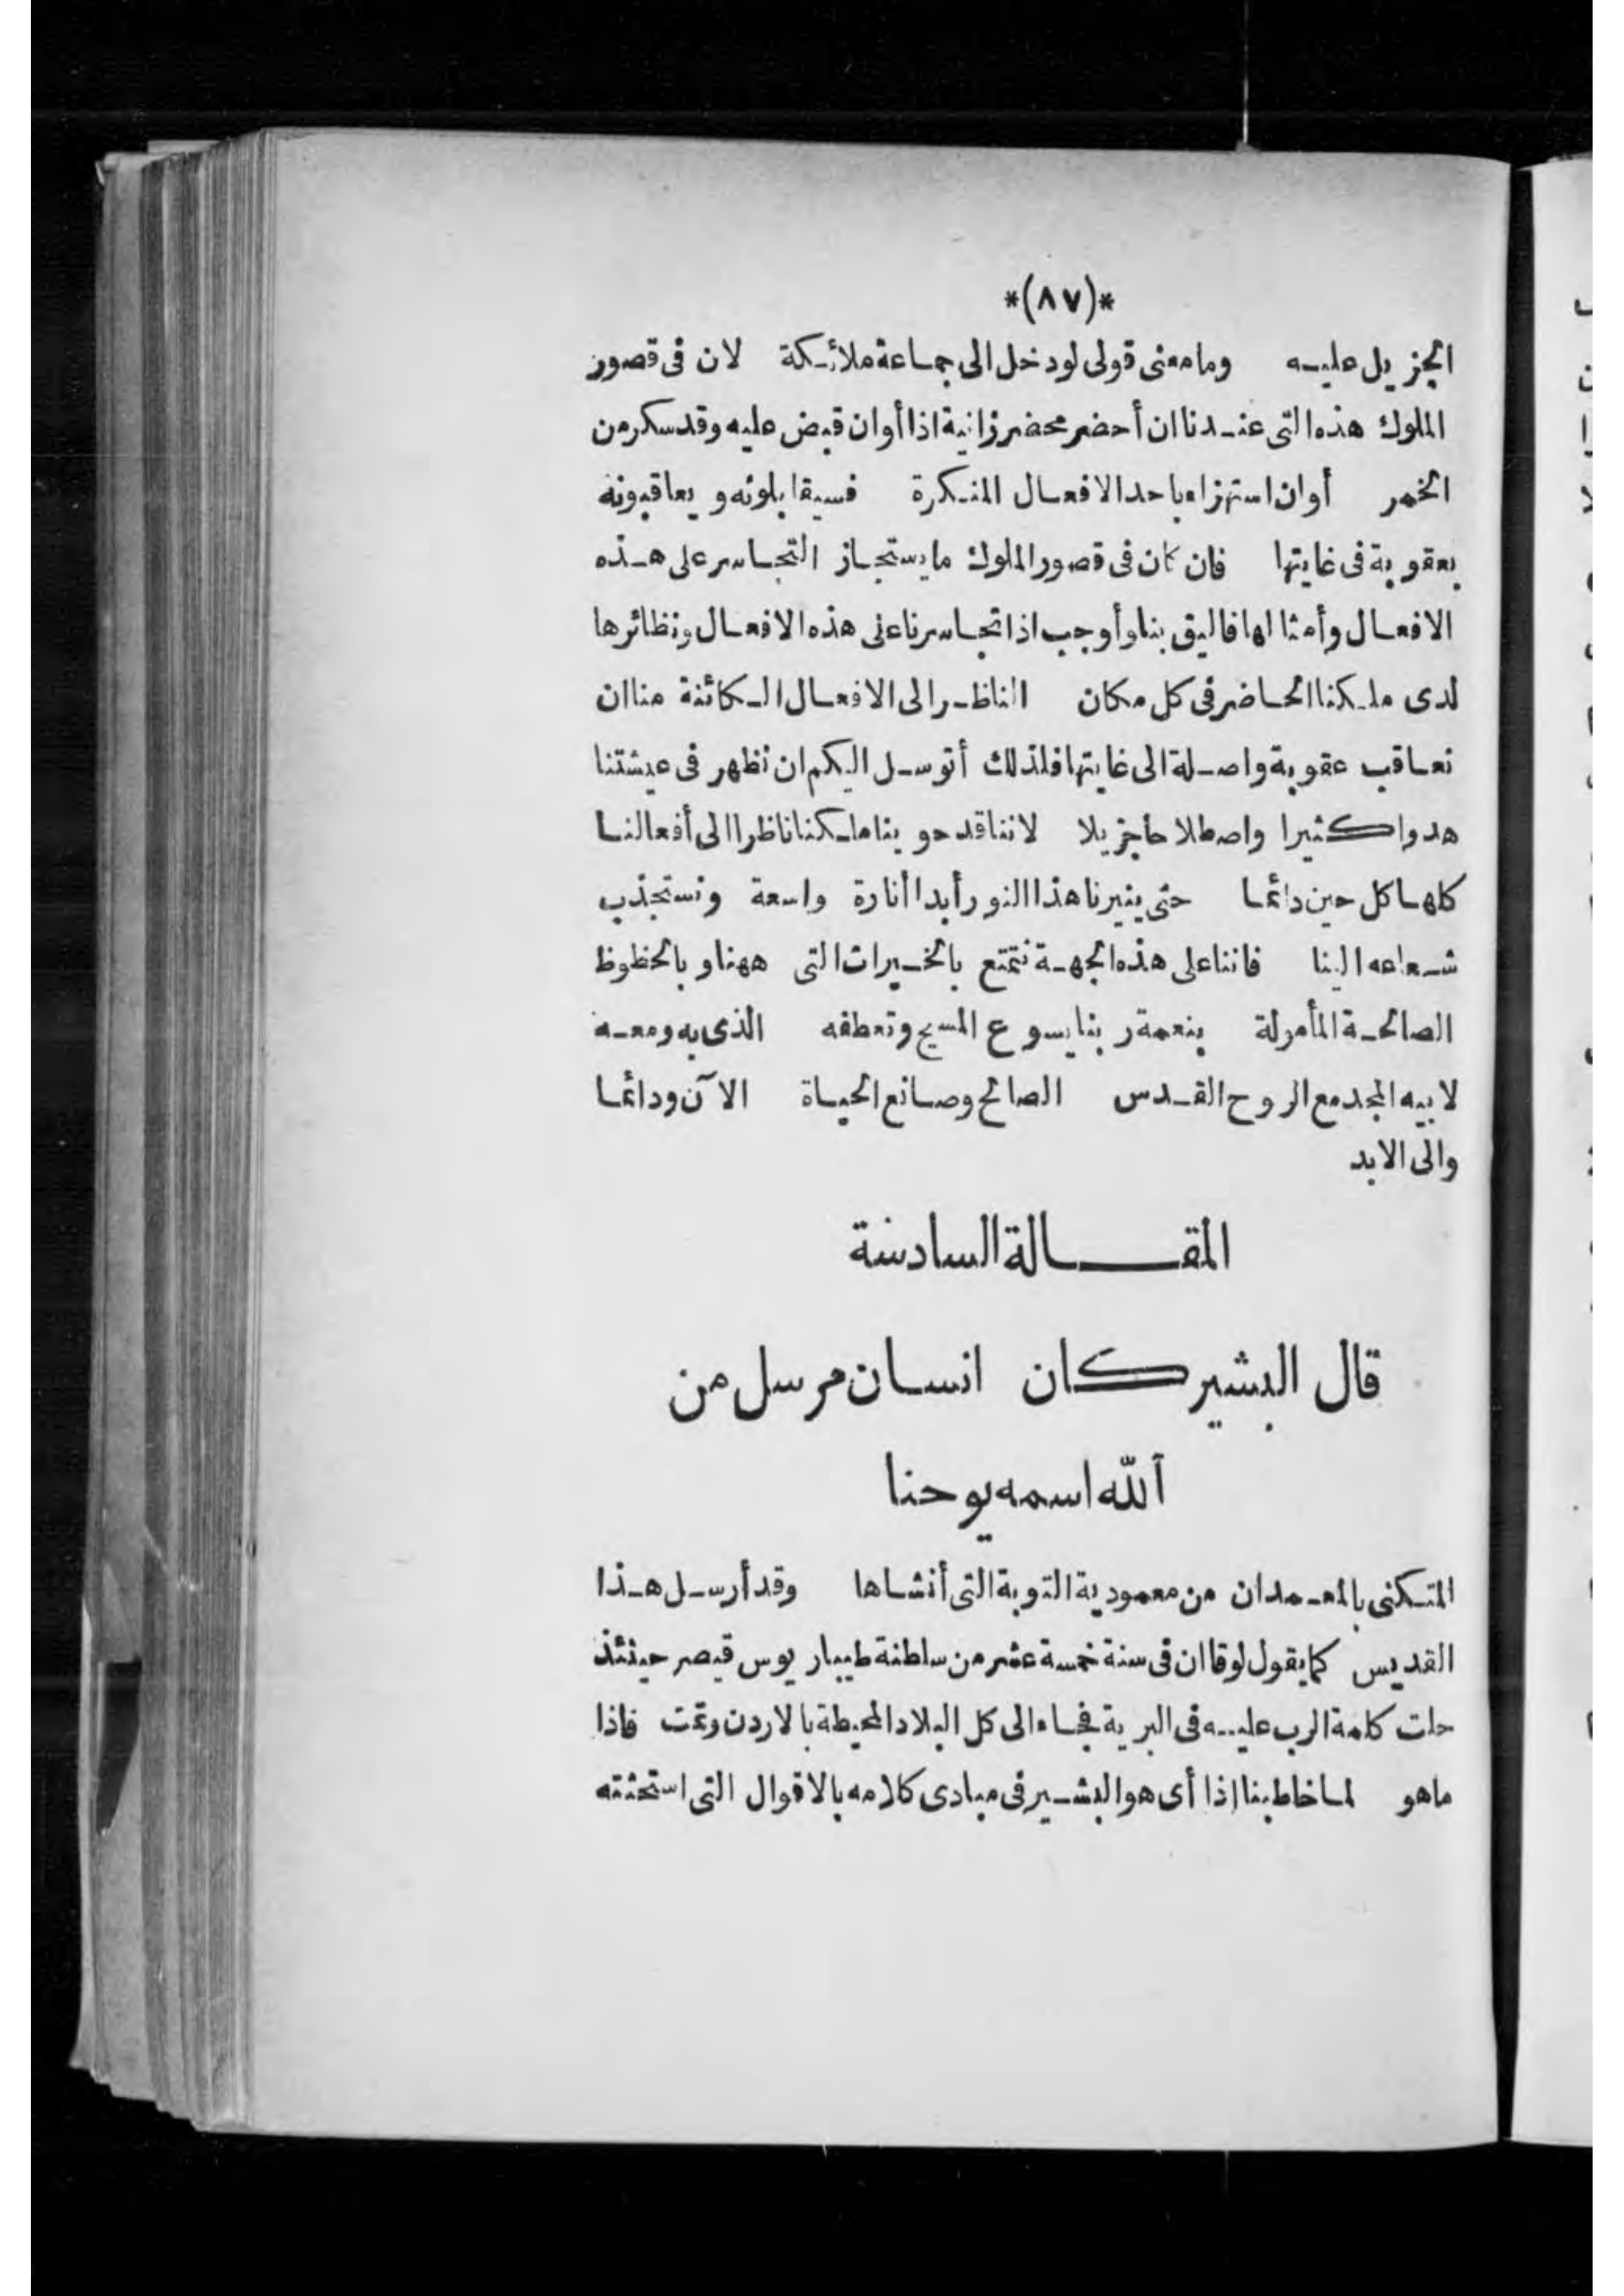 *(٨٧)*
الجزيل عليه وما معنى قولى لو دخل الى جماعة ملائكة لان فى قصور
الملوك هذه التى عندنا ان أحضر محضر زانية اذا أو ان قبض عليه وقد سكر من
الخمر أو ان استهزاء باحد الافعال المنكرة فسيقابلونه ويعاقبونه
بعقوبة فى غايتها فان كان فى قصور الملوك ما يستجاز التجاسر على هذه
الافعال وأمثالها فاليق بنا وأوجب اذا تجاسرنا على هذه الافعال ونظائرها
لدى ملكنا الحاضر فى كل مكان الناظر الى الافعال الكائنة منا ان
نعاقب عقوبة واصلة الى غايتها فلذلك أتوسل اليكم ان نظهر فى عيشتنا
هدوا كثيرا واصطلاحا جزيلا لاننا قد حوينا ملكنا ناظرا الى أفعالنا
كلها كل حين دائما حتى ينيرنا هذا النور أبدا أنارة واسعة ونستجذب
شعاعه الينا فاننا على هذه الجهة نتمتع بالخيرات التى ههنا وبالحظوظ
الصالحة المأمولة بنعمة ربنا يسوع المسيح وتعطفه الذى به ومعه
لابيه المجد مع الروح القدس الصالح وصانع الحياة الآن ودائما
والى الابد
المقالة السادسة
قال البشير كان انسان مرسل من
الله اسمه يوحنا
المتكنى بالمعمدان من معمودية التوبة التى أنشاها وقد أرسل هذا
القديس كما يقول لوقا ان فى سنة خمسة عشر من سلطنة طيباريوس قيصر حينئذ
حلت كلمة الرب عليه فى البرية فجاء الى كل البلاد المحيطة بالاردن وتمت فاذا
ماهو لما خاطبنا اذا أى هو البشير فى مبادى كلامه بالاقوال التى استحثته